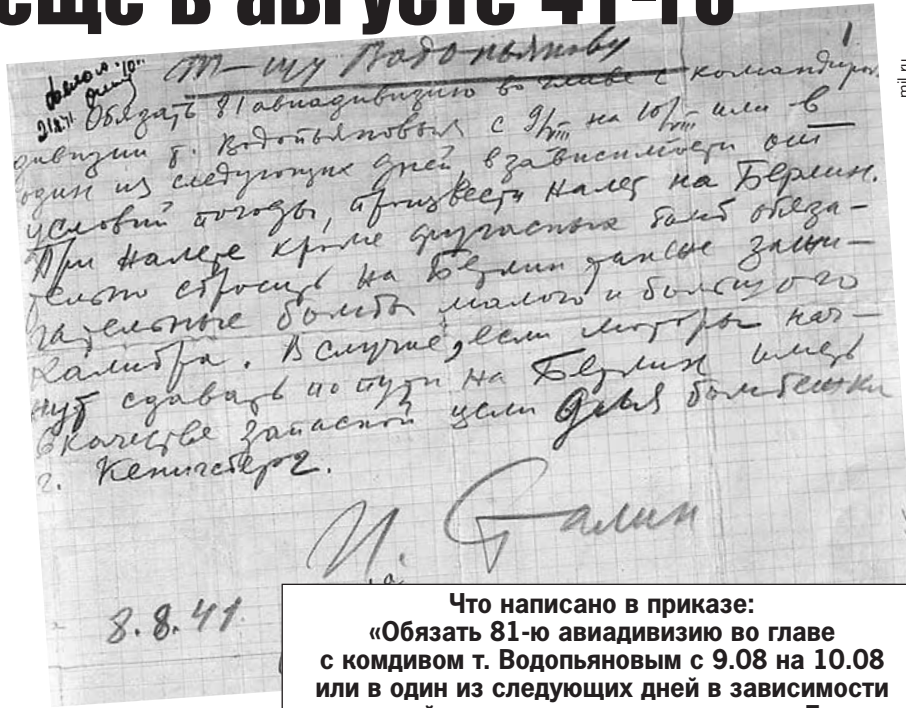 еще в августе 41-го
mil.ru
1
Т-щу Водопьянову
Обязать 81 авиадивизию во главе с командиром
дивизии т. Водопьяновым с 9/VIII на 10/VIII или в
один из следующих дней в зависимости от
условий погоды, произвести налет на Берлин.
При налете кроме фугасных бомб обяза-
тельно сбросить на Берлин также зажи-
гательные бомбы малого и большого
калибра. В случае, если моторы нач-
нут сдавать по пути на Берлин иметь
в качестве запасной цели для бомбежки
г. Кенигсберг.
И. Сталин
8.8.41
Что написано в приказе:
«Обязать 81-ю авиадивизию во главе
с комдивом т. Водопьяновым с 9.08 на 10.08
или в один из следующих дней в зависимости